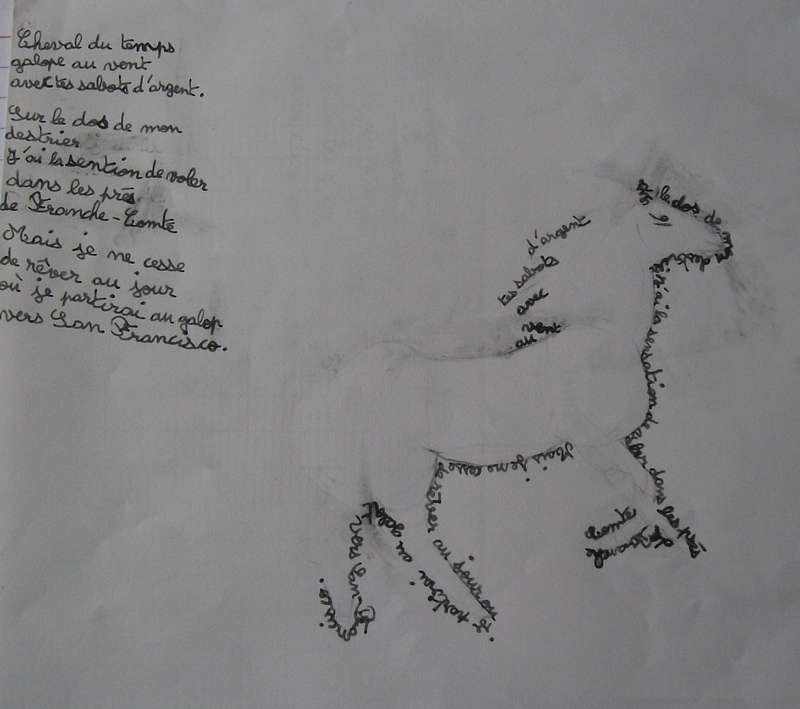 Cheval du temps
galope au vent
avec tes sabots d'argent.
Sur le dos de mon
destrier
J'ai la sention de voler
dans les prés
de Franche-Comté
Mais je ne cesse
de rêver au jour
où je partirai au galop
vers San Francisco.
d'argent
tes sabots
avec
vent
au
Sur le dos de mon
destrier
j'ai la sensation de
voler dans les prés
de Franche
Comté
Mais je ne cesse
de rêver au jour
où je partirai au galop
vers San-Francisco.